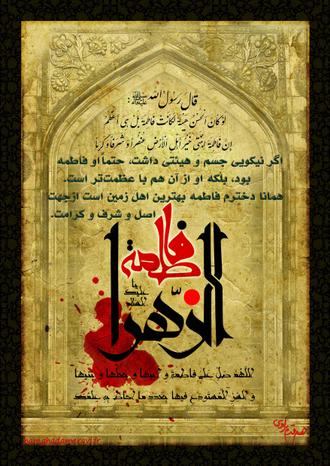 قال رسول الله ﷺ:
لو كان الحسن هيئة لكانت فاطمة بل هي اعظم
إن فاطمة ابنتي خير أهل الأرض عنصراً و شرفاً و كرماً
اگر نیکویی جسم و هیئتی داشت، حتماً او فاطمه
بود، بلکه او از آن هم با عظمت‌تر است.
همانا دخترم فاطمه بهترین اهل زمین است ازجهت
اصل و شرف و کرامت.
فاطمة
الزهراء
علیها السلام
اللهم صل علی فاطمة و ابیها و بعلها و بنیها
و السر المستودع فیها بعدد ما احاط به علمک